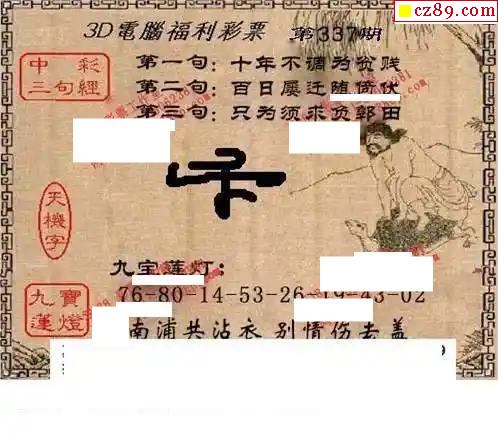 cz89.com
3D電腦福利彩票 第337期
中彩
三句經
第一句：十年不调为贫贱
第二句：百日屡迁随倚伏
第三句：只为须求负郭田
天機字
九宝莲灯：
九寶
蓮燈
76-80-14-53-26-19-43-02
南浦共沾衣 别情伤去盖